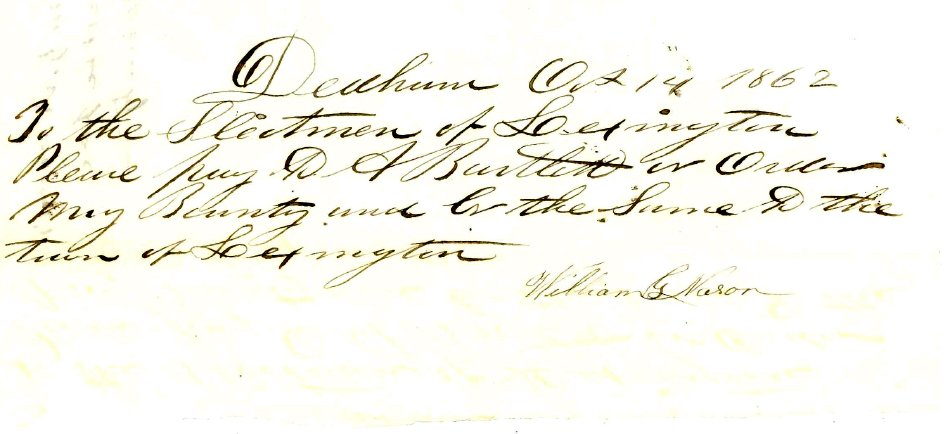 Dedham Oct 14 1862
To the Slectmen of Lexington
Please pay D A Bartlett or Order
my Bounty and Cr the Same to the
town of Lexington
William G Nason